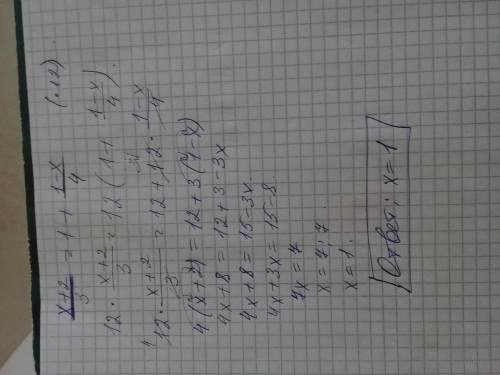 x+2/3 = 1 + 1-x/4 (·12).
12 · x+2/3 = 12 (1+ 1-x/4).
12 · x+2/3 = 12 + 12 · 1-x/4
4(x+2) = 12+3(1-x)
4x+8 = 12+3-3x
4x+8 = 15-3x
4x+3x = 15-8
7x = 7
x = 7:7
x = 1.
Ответ: x = 1